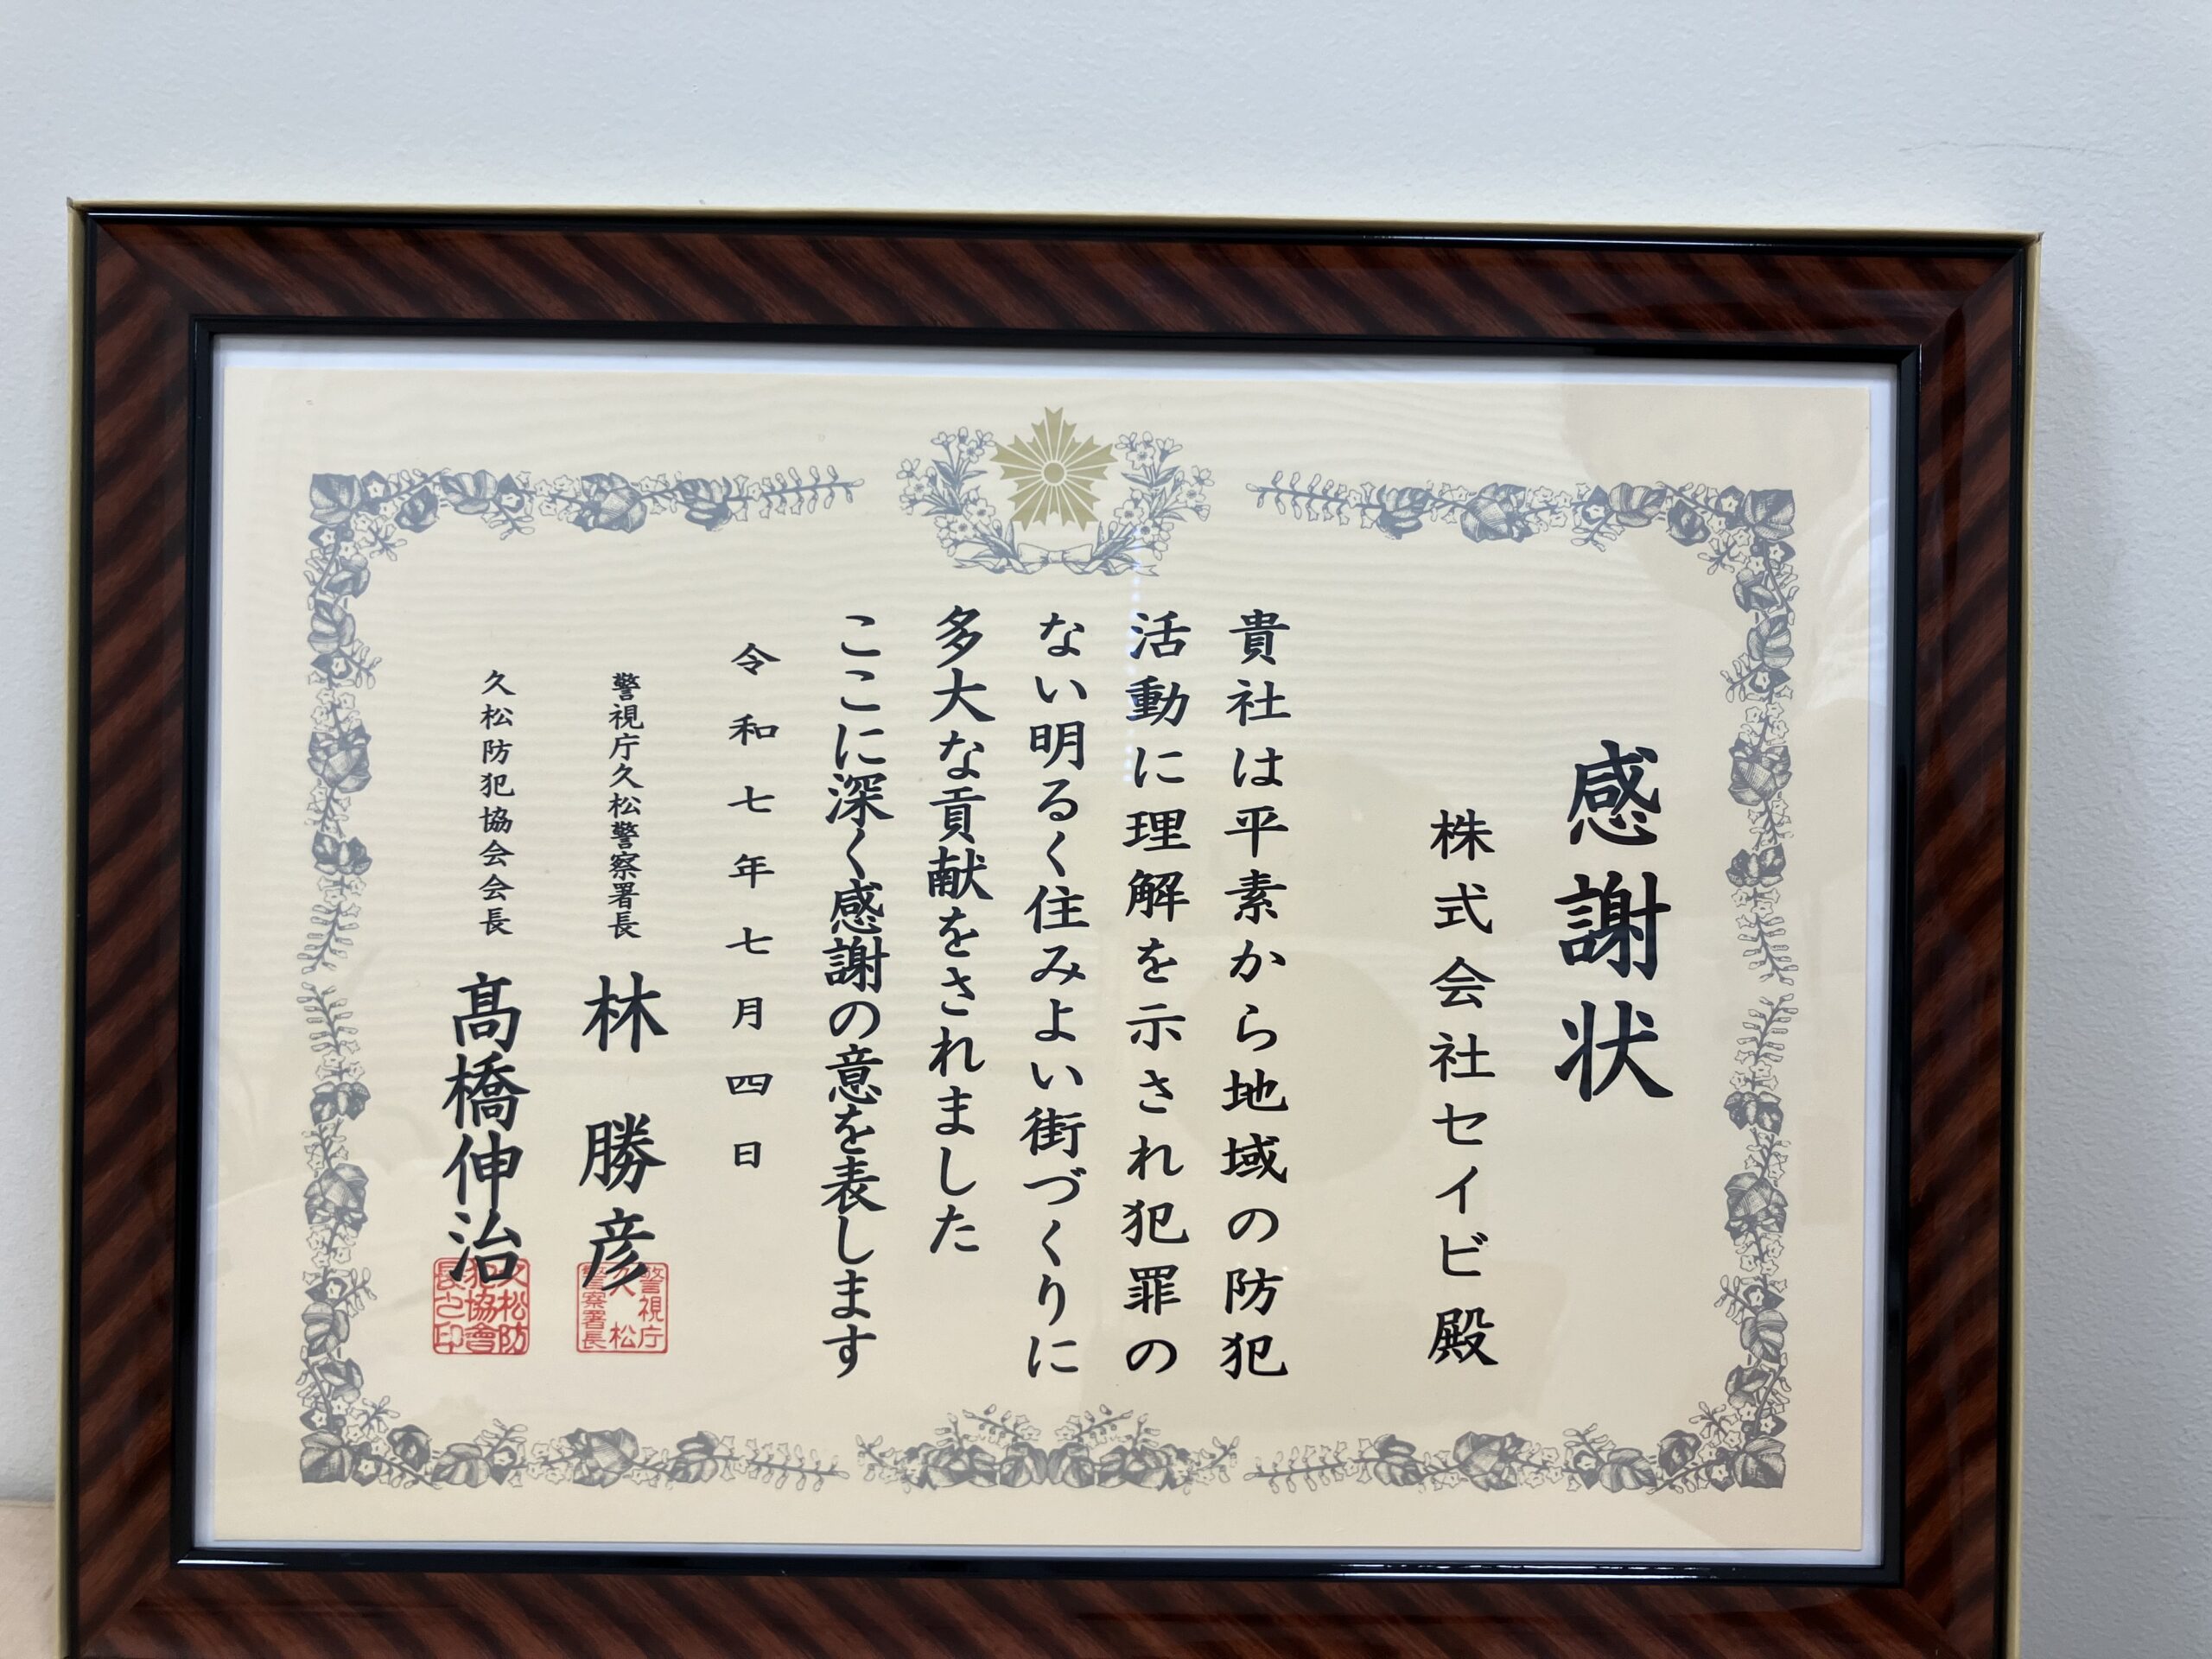 感謝状
株式会社セイビ殿
貴社は平素から地域の防犯
活動に理解を示され犯罪の
ない明るく住みよい街づくりに
多大な貢献をされました
ここに深く感謝の意を表します
令和七年七月四日
警視庁久松警察署長 林 勝彦
警視庁
久松
警察署長
久松防犯協会会長 髙橋伸治
久松防
犯協會
長之印